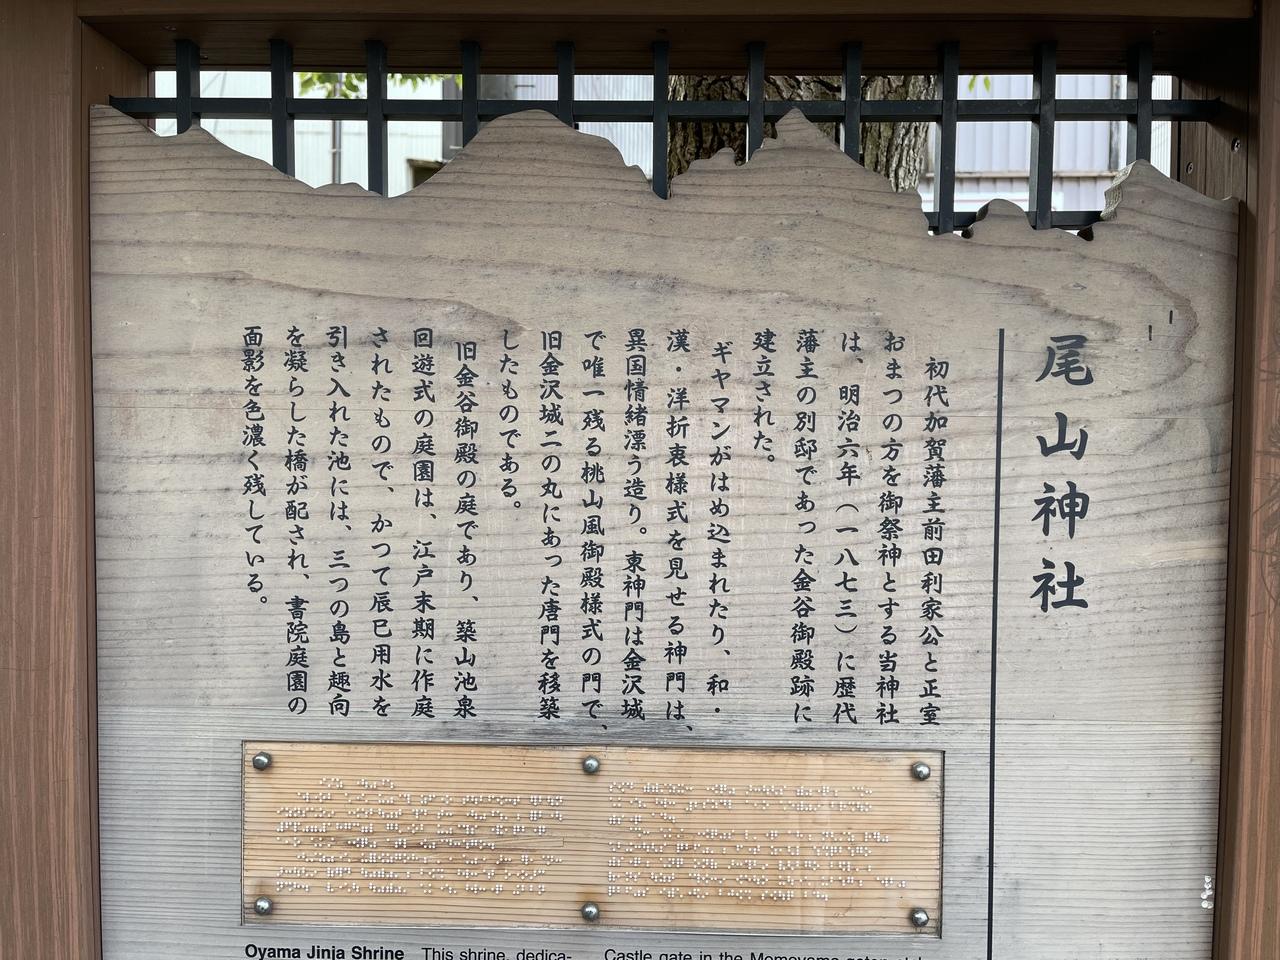 尾山神社
初代加賀藩主前田利家公と正室
おまつの方を御祭神とする当神社
は、明治六年（一八七三）に歴代
藩主の別邸であった金谷御殿跡に
建立された。
ギヤマンがはめ込まれたり、和・
漢・洋折衷様式を見せる神門は、
異国情緒漂う造り。東神門は金沢城
で唯一残る桃山風御殿様式の門で、
旧金沢城二の丸にあった唐門を移築
したものである。
旧金谷御殿の庭であり、築山池泉
回遊式の庭園は、江戸末期に作庭
されたもので、かつて辰巳用水を
引き入れた池には、三つの島と趣向
を凝らした橋が配され、書院庭園の
面影を色濃く残している。
Oyama Jinja Shrine This shrine, dedica-
Castle gate in the Momoyama